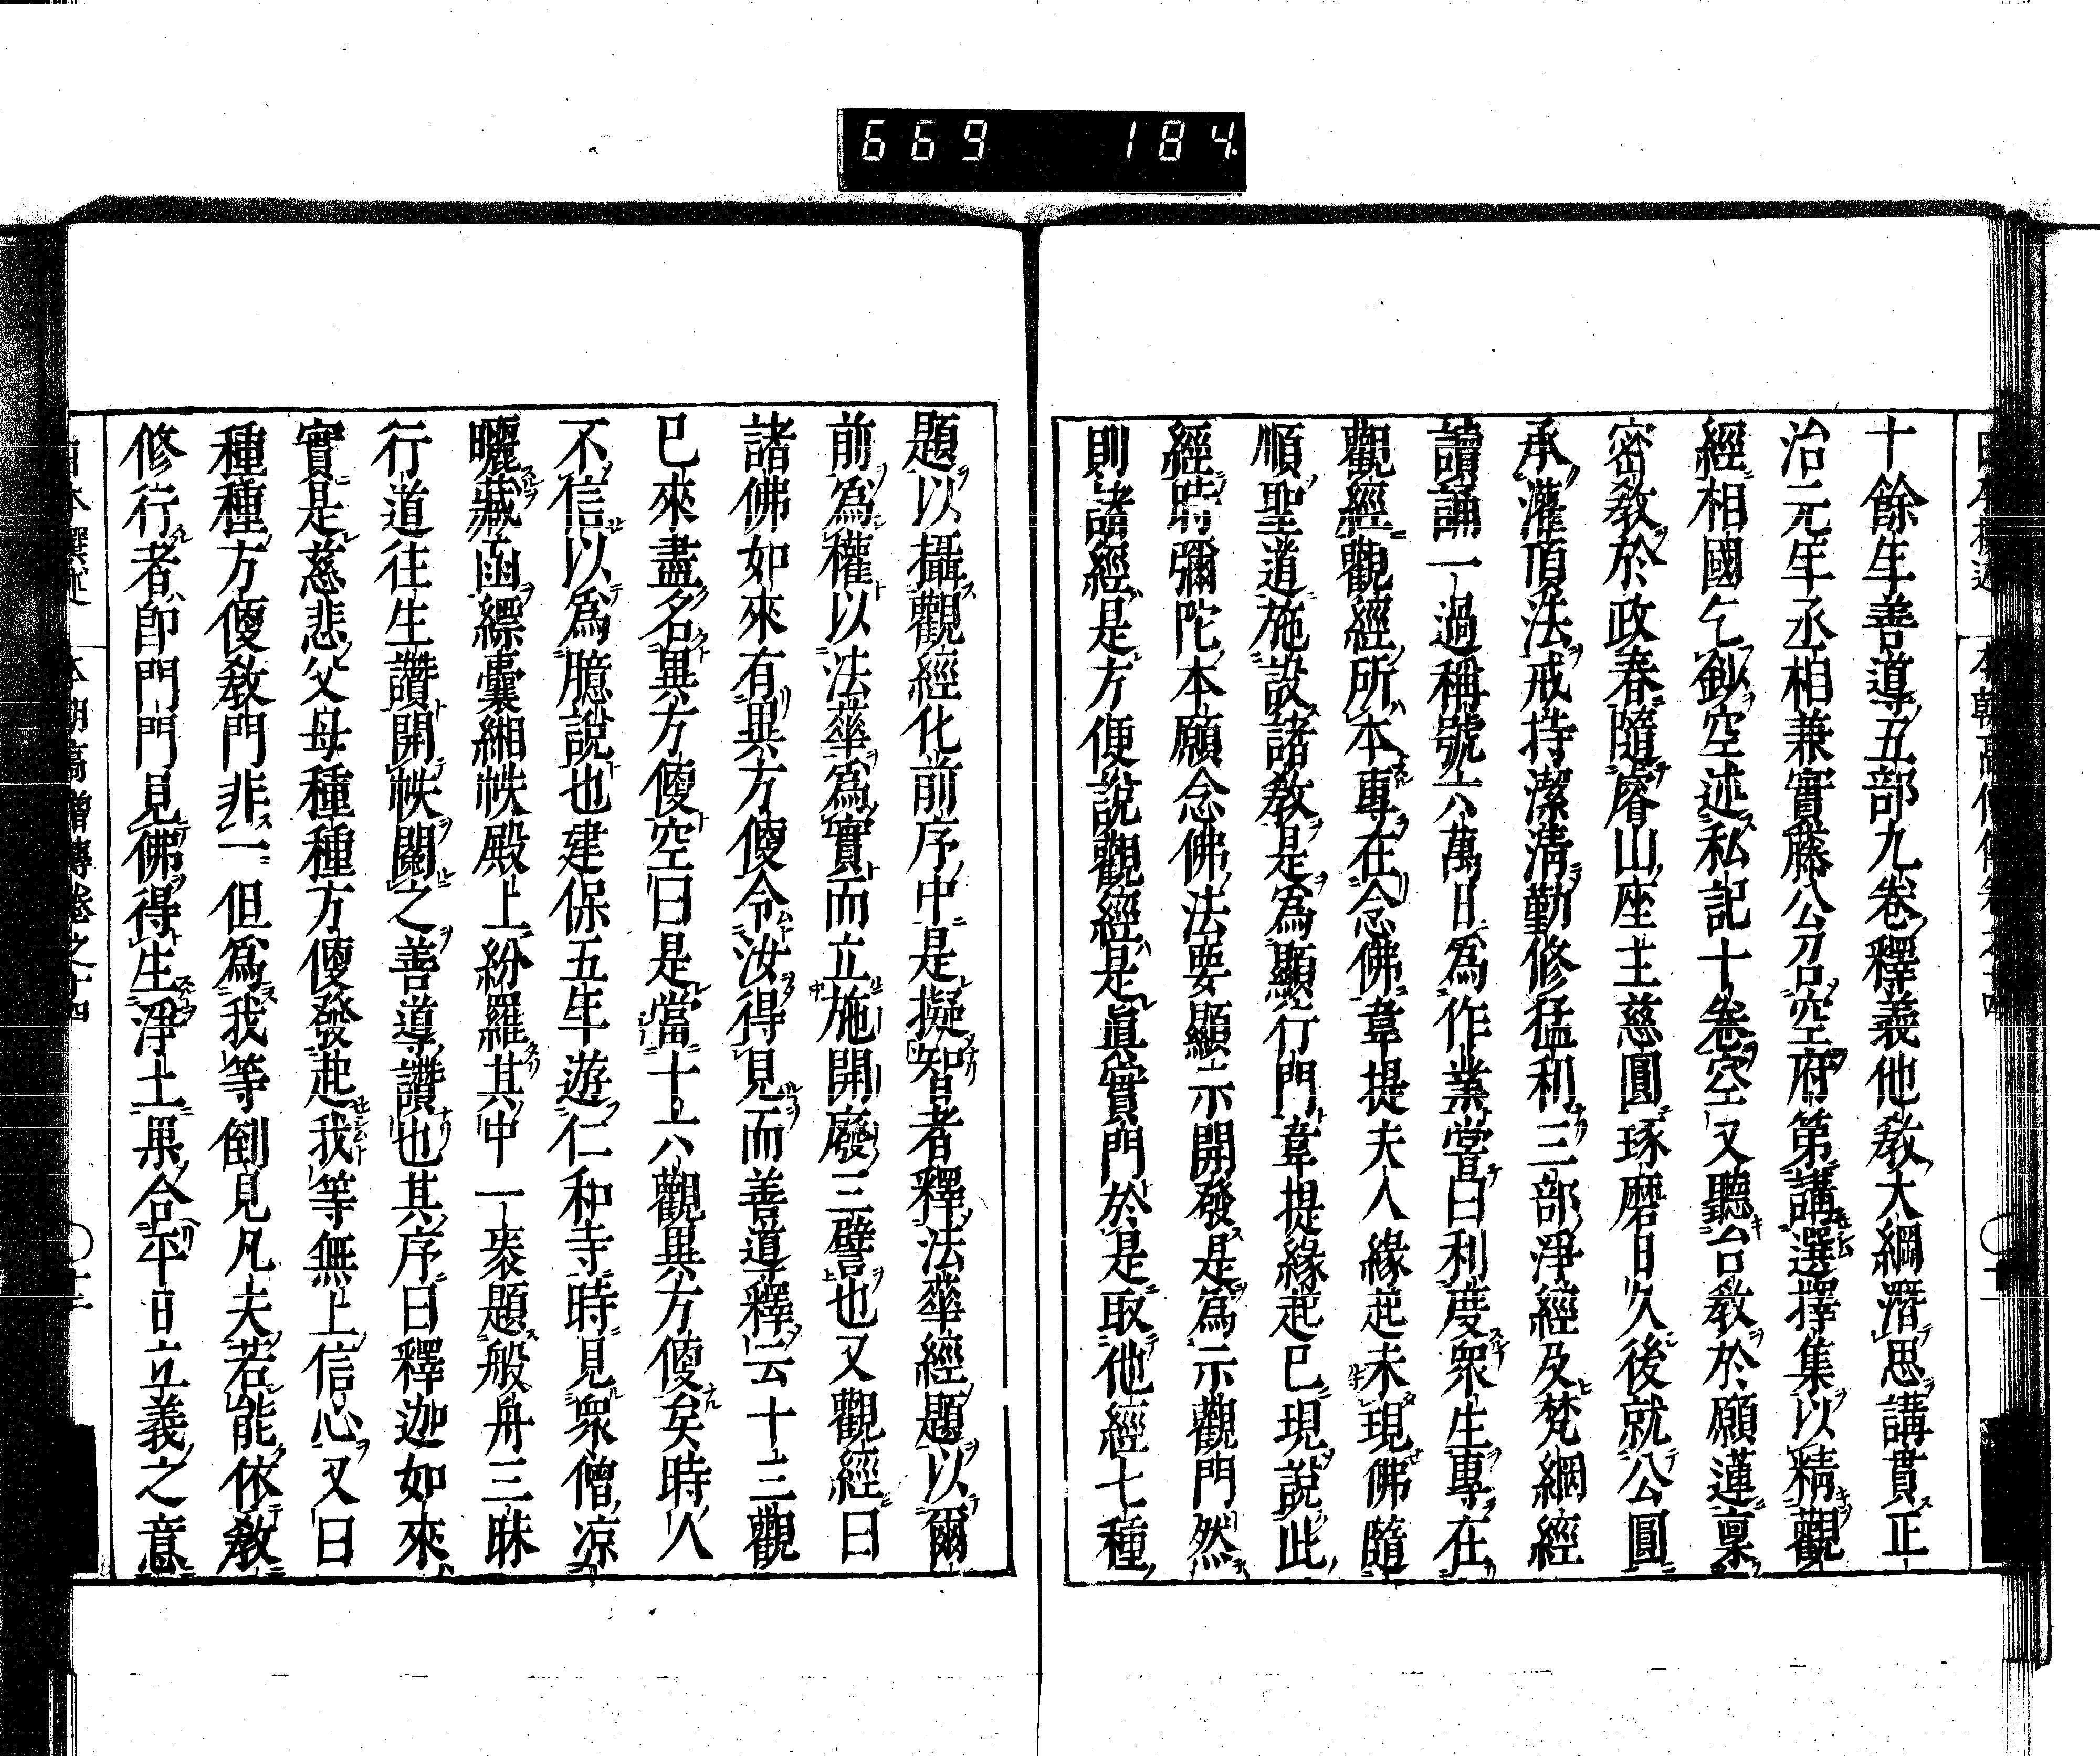 669 184
十餘年善導五部九卷釋義他教大綱潛思講貫正
治元年丞相兼實藤公召空府第講選擇集以精觀
經相國乞鈔空述私記十卷空又聽台教於願蓮稟
密教於政春隨睿山座主慈圓琢磨日久後就公圓
承灌頂法戒持潔清勤修猛利三部淨經及梵網經
讀誦一過稱號六萬日為作業當曰利度衆生專在
觀經觀經所本專在念佛韋提夫人緣起未現佛隨
順聖道施設諸教是為顯行門韋提緣起已現說此
經時彌陀本願念佛法要顯示開發是為示觀門然
則諸經是方便說觀經是眞實門於是取他經七種
題以攝觀經化前序中是擬智者釋法華經題以爾
前爲權以法華爲實而立施開廢三譬也又觀經曰
諸佛如來有異方便令汝得見而善導釋云十三觀
已來盡名異方便空曰是當十六觀異方便矣時人
不信以爲臆說也建保五年遊仁和寺時見衆僧凉
曬藏函縹囊緗帙殿上紛羅其中一袠題般舟三昧
行道往生讚開帙閱之善導讚也其序曰釋迦如來
實是慈悲父母種種方便發起我等無上信心又曰
種種方便教門非一但爲我等倒見凡夫若能依教
修行者即門門見佛得生淨土果合平日立義之意
日本撰述 本朝高僧傳卷之十四